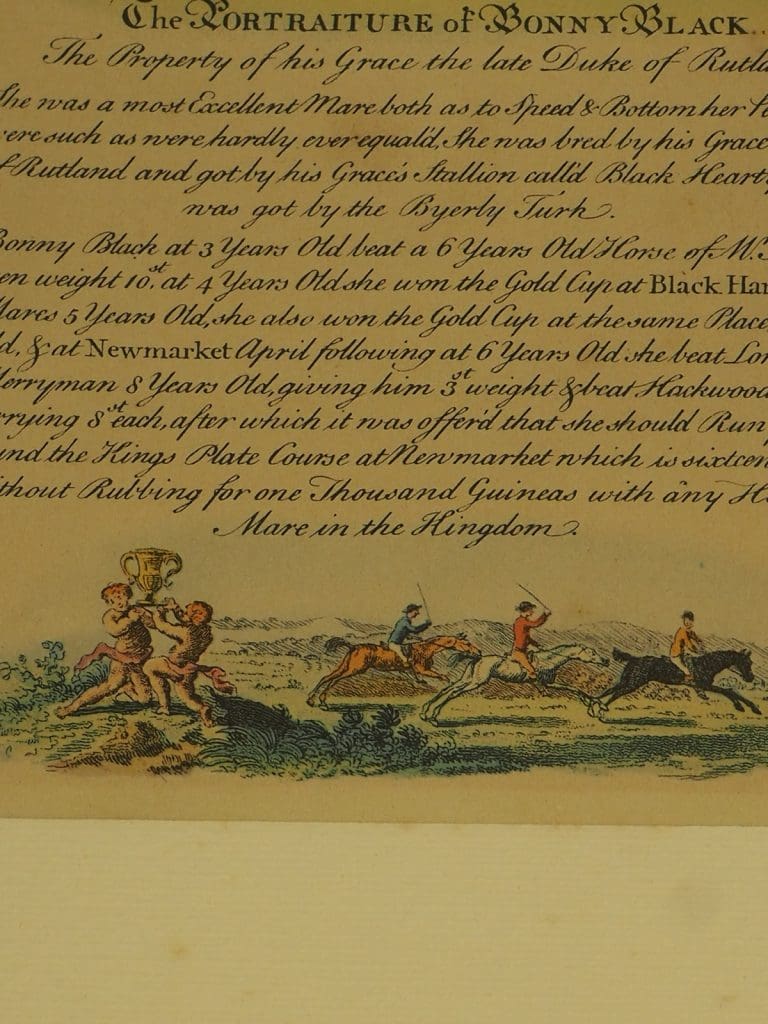 The PORTRAITURE of BONNY BLACK
The Property of his Grace the late Duke of
She was a most Excellent Mare both as to Speed & Bottom her
were such as were hardly ever equal'd, She was bred by his Grace
of Rutland and got by his Grace's Stallion call'd Black Hearty
was got by the Byerly Turk.
Bonny Black at 3 Years Old beat a 6 Years Old Horse of Mr.
weight 10st. at 4 Years Old she won the Gold Cup at Black
Mares 5 Years Old, she also won the Gold Cup at the same Place,
& at Newmarket April following at 6 Years Old she beat
Merryman 8 Years Old, giving him 3st weight & beat Hackwood
8st each, after which it was offer'd that she should Run
the Kings Plate Course at Newmarket which is sixteen
without Rubbing for one Thousand Guineas with any
Mare in the Kingdom.